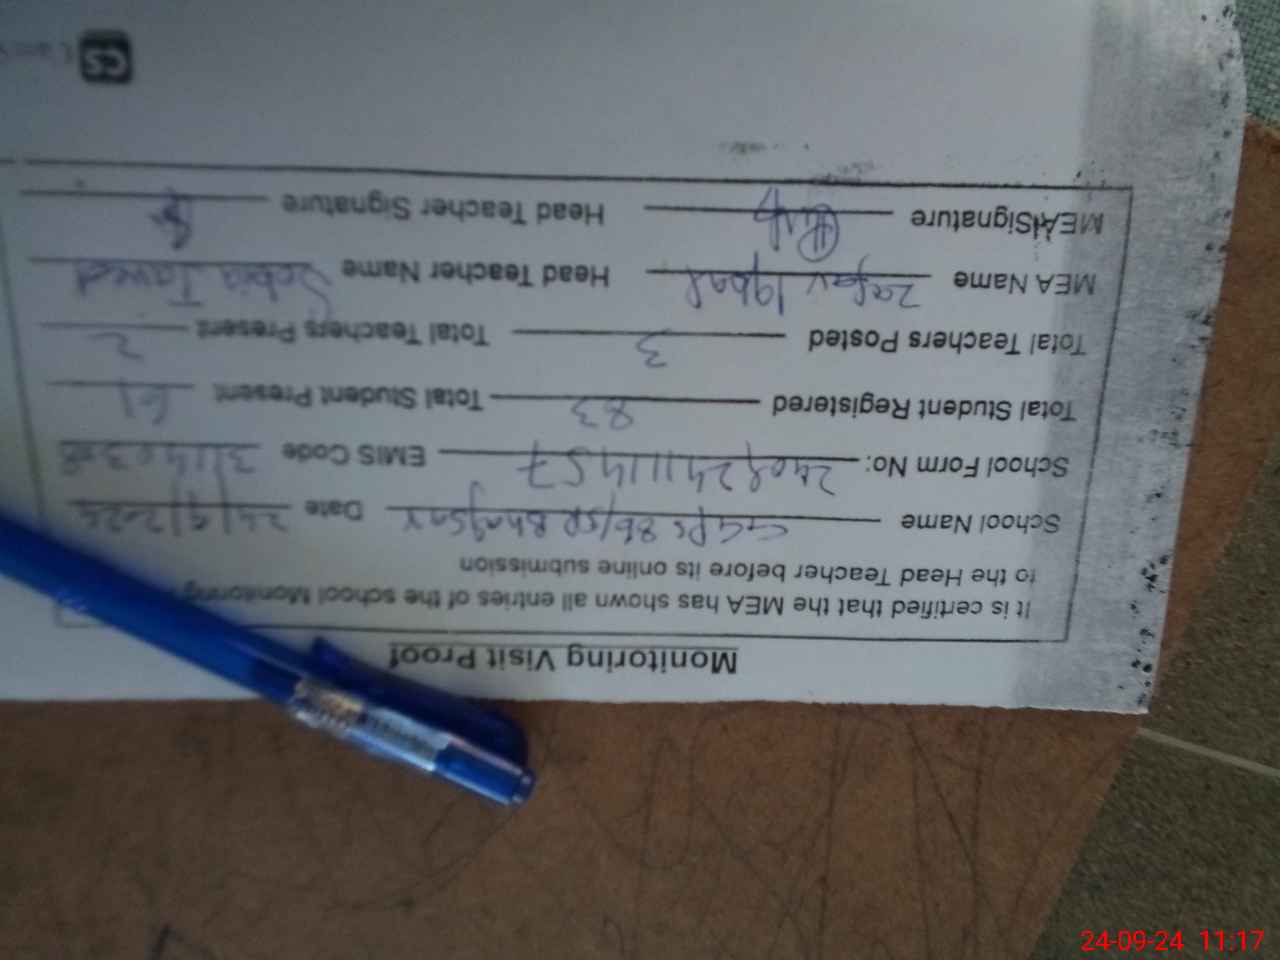 Monitoring Visit Proof
It is certified that the MEA has shown all entries of the school Monitoring
to the Head Teacher before its online submission
School Name GGPS 86/SP Bhagsar Date 24/9/2024
School Form No: 2409241111457 EMIS Code
Total Student Registered 83 Total Student Present 61
Total Teachers Posted 3 Total Teachers Present 2
MEA Name Zafar Iqbal Head Teacher Name Sobia Javed
MEA Signature Head Teacher Signature
CS
24-09-24 11:17